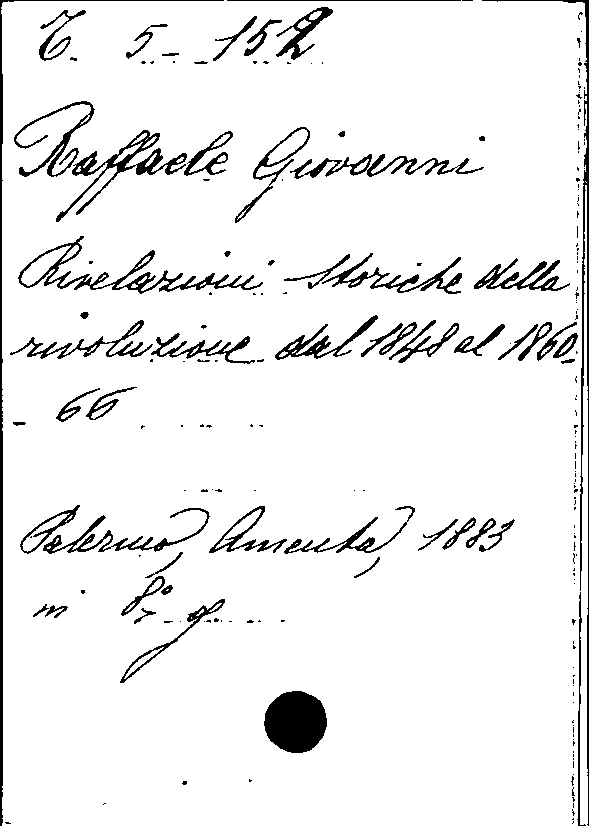 C. 5 - 152
Raffaele Giovanni
Rivelazioni storiche della
rivoluzione dal 1848 al 1860
- 66
Palermo, Amenta, 1883
in 8° g.